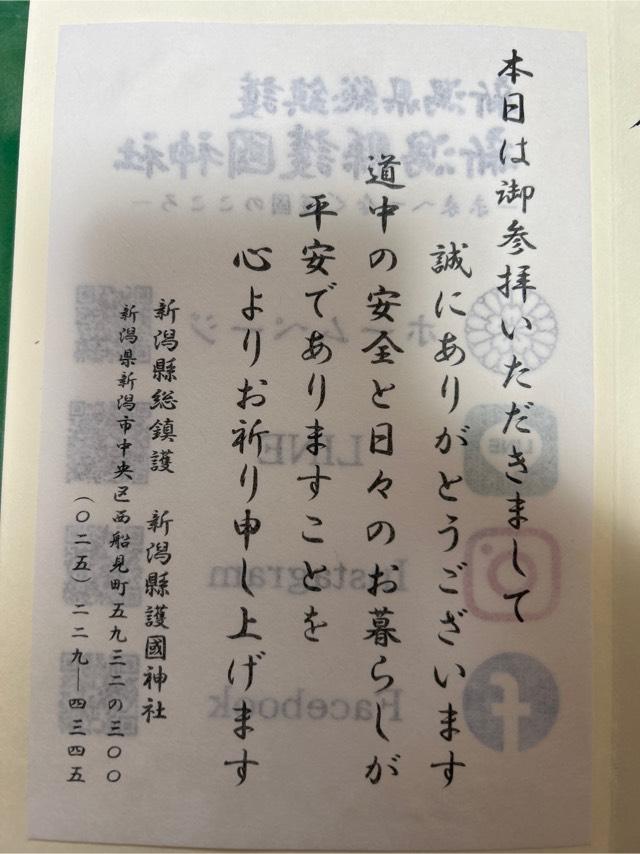 本日は御参拝いただきまして
誠にありがとうございます
道中の安全と日々のお暮らしが
平安でありますことを
心よりお祈り申し上げます
新潟縣総鎮護　新潟縣護國神社
新潟県新潟市中央区西船見町五九三二の三〇〇
（〇二五）二二九―四三四五
新潟県総鎮護
新潟縣護國神社
ホームページ
LINE
Instagram
Facebook